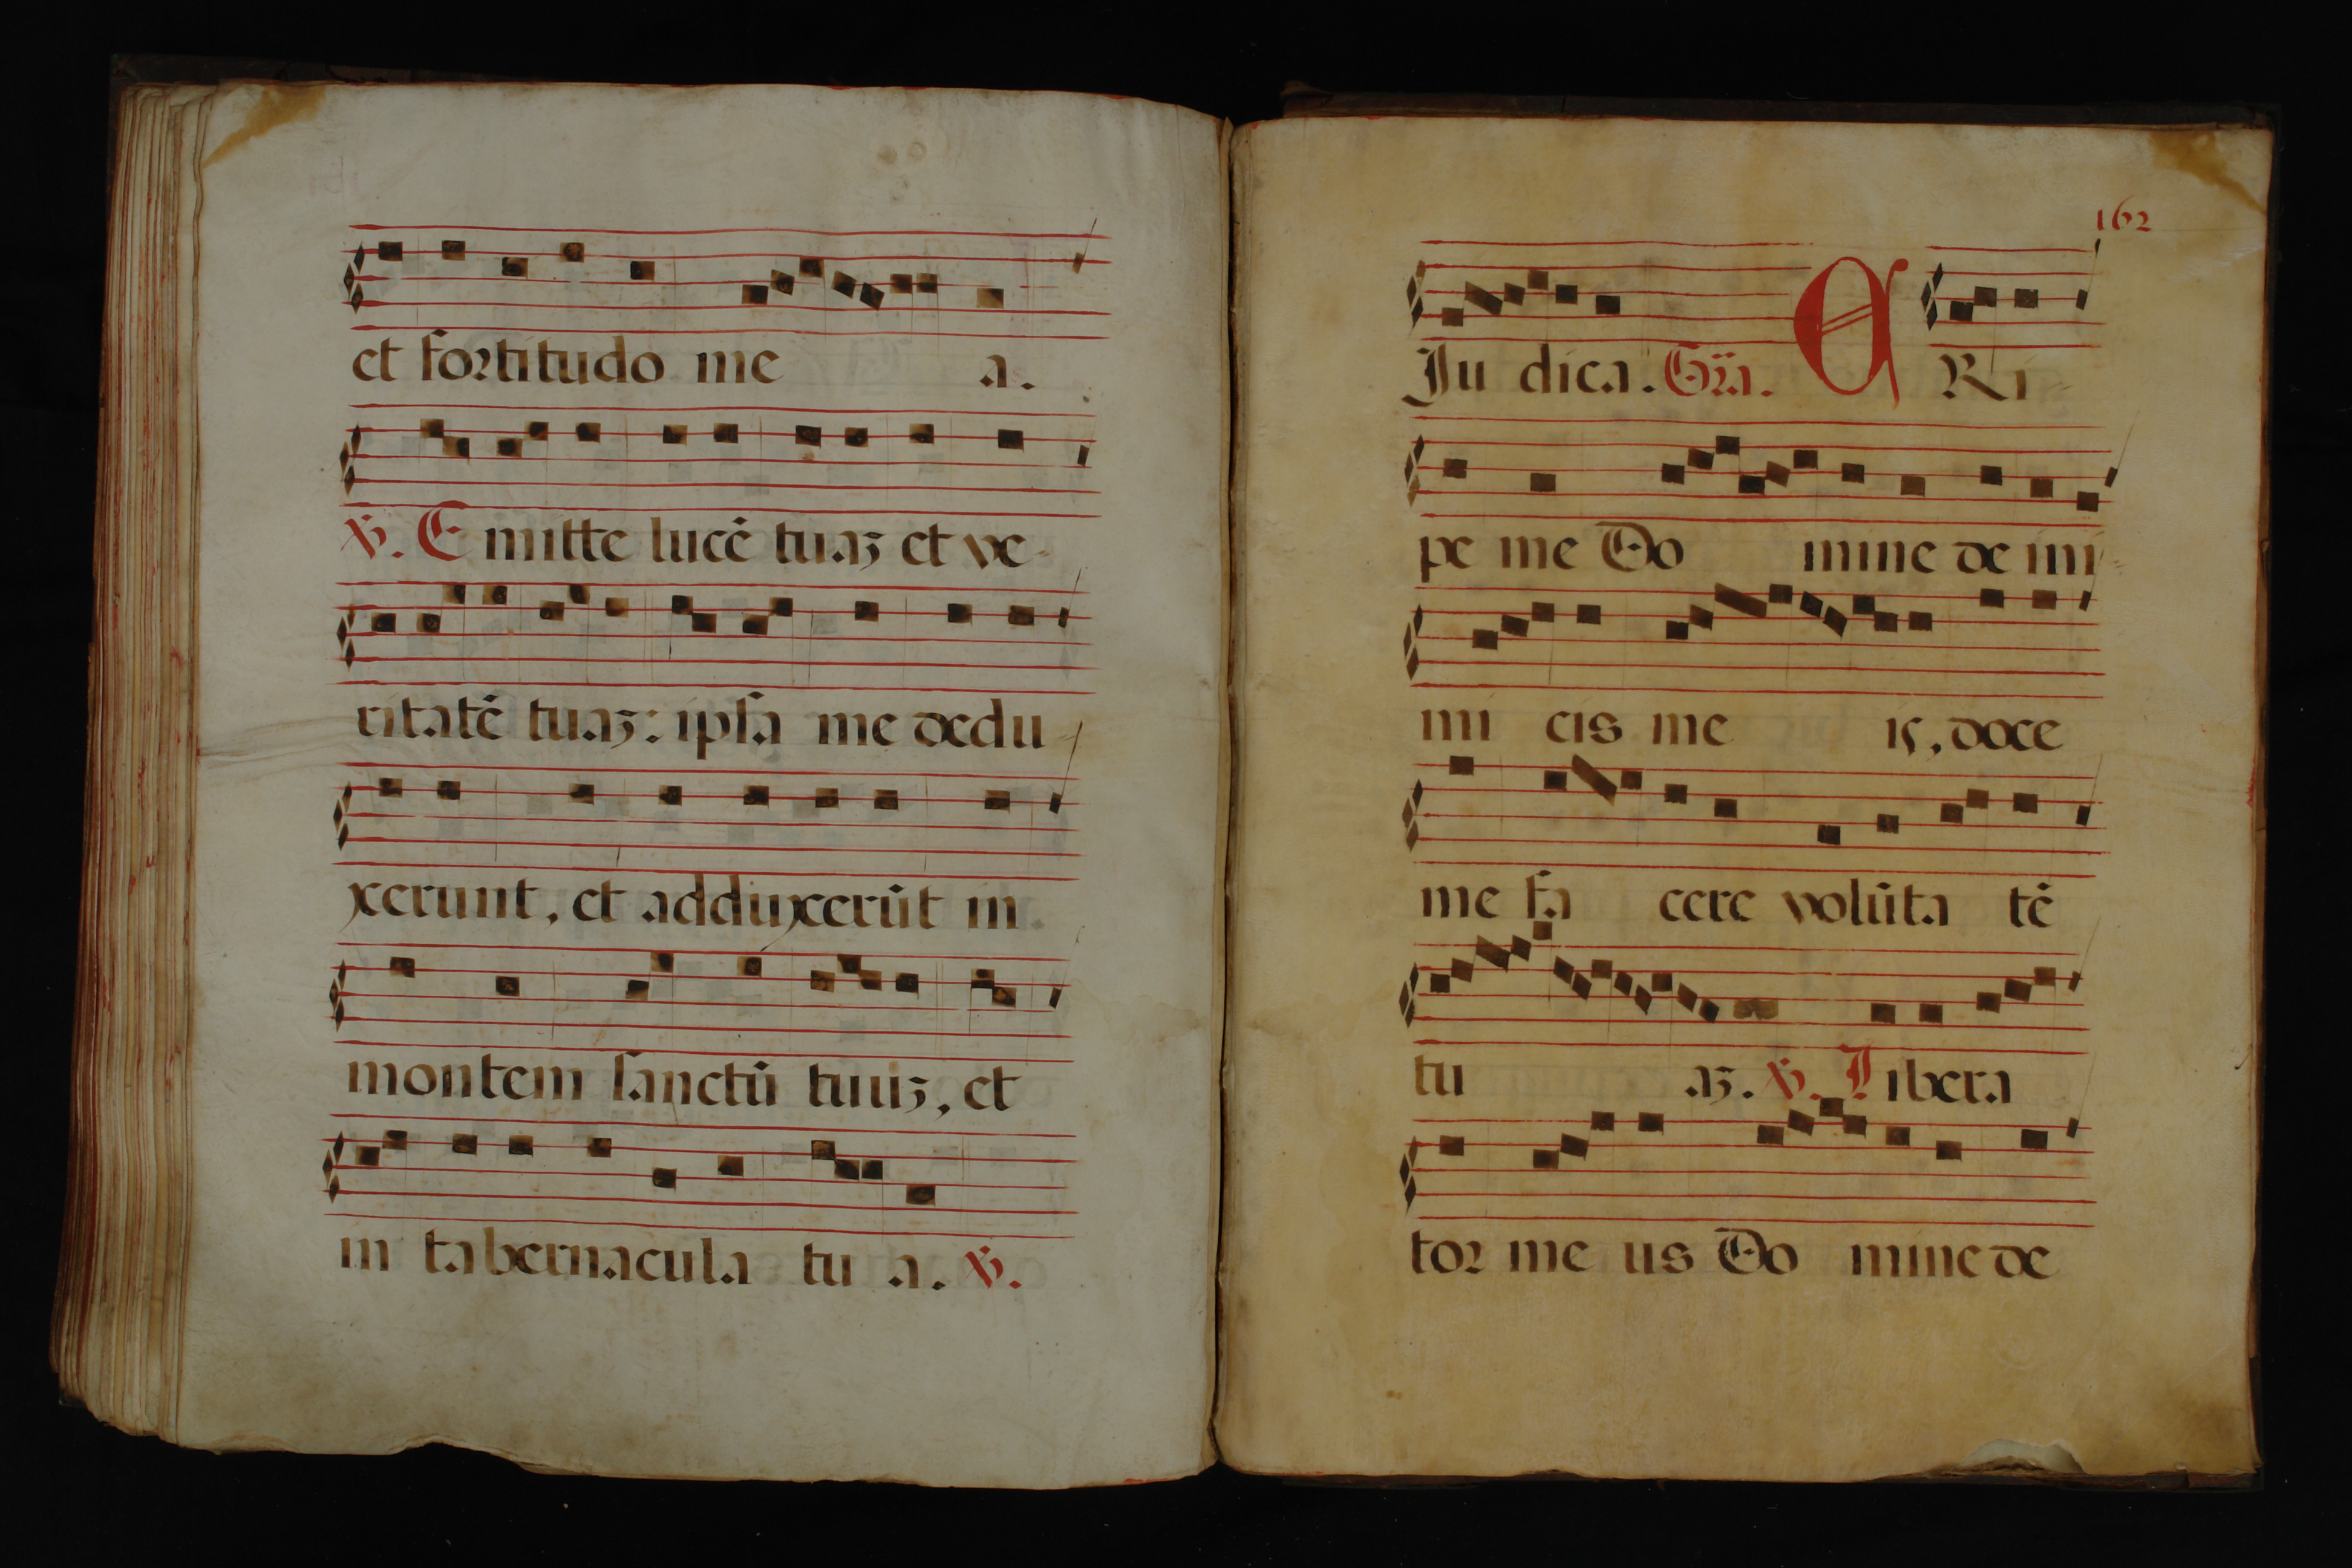 et fortitudo me a.
℣. E mitte lucē tuaȝ et ve-
ritatē tuaȝ: ipsa me dedu
xerunt, et adduxerūt in
montem sanctū tuuȝ, et
in tabernacula tu a. ℣.
162
Ju dica. Gra. E Ri-
pe me Do mine de ini
mi cis me is, doce
me fa cere volūta tē
tu aȝ. ℣. Libera
tor me us Do mine de